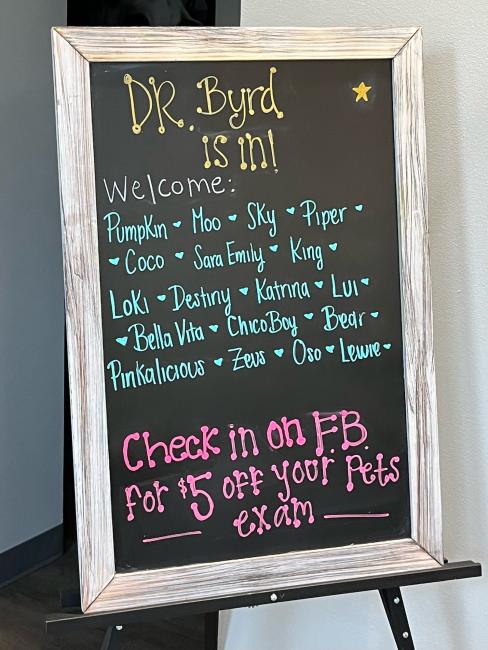 DR. Byrd
is in!
Welcome:
Pumpkin ♥ Moo ♥ Sky ♥ Piper ♥
♥ Coco ♥ Sara Emily ♥ King ♥
Loki ♥ Destiny ♥ Katrina ♥ Lui ♥
♥ Bella Vita ♥ ChicoBoy ♥ Bear ♥
Pinkalicious ♥ Zeus ♥ Oso ♥ Lewie ♥
Check in on F.B.
for $5 off your Pets
exam